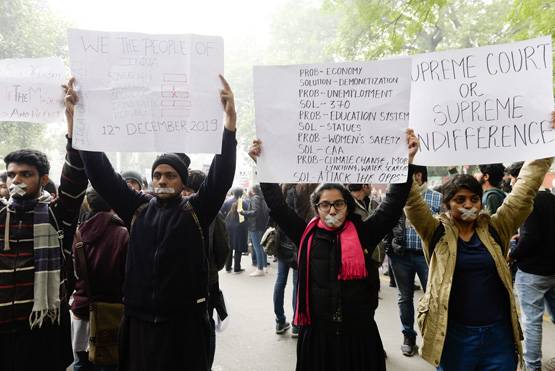 #THE M
WE THE PEOPLE OF
INDIA
SOVEREIGN
12TH DECEMBER 2019
PROB - ECONOMY
SOLUTION - DEMONETIZATION
PROB - UNEMPLOYMENT
SOL - 370
PROB - EDUCATION SYSTEM
SOL - STATUES
PROB - WOMEN'S SAFETY
SOL - CAA
PROB - CLIMATE CHANGE, MOB
WATER
SOL - ATTACK THE OPPO
UPREME COURT
OR
SUPREME
INDIFFERENCE